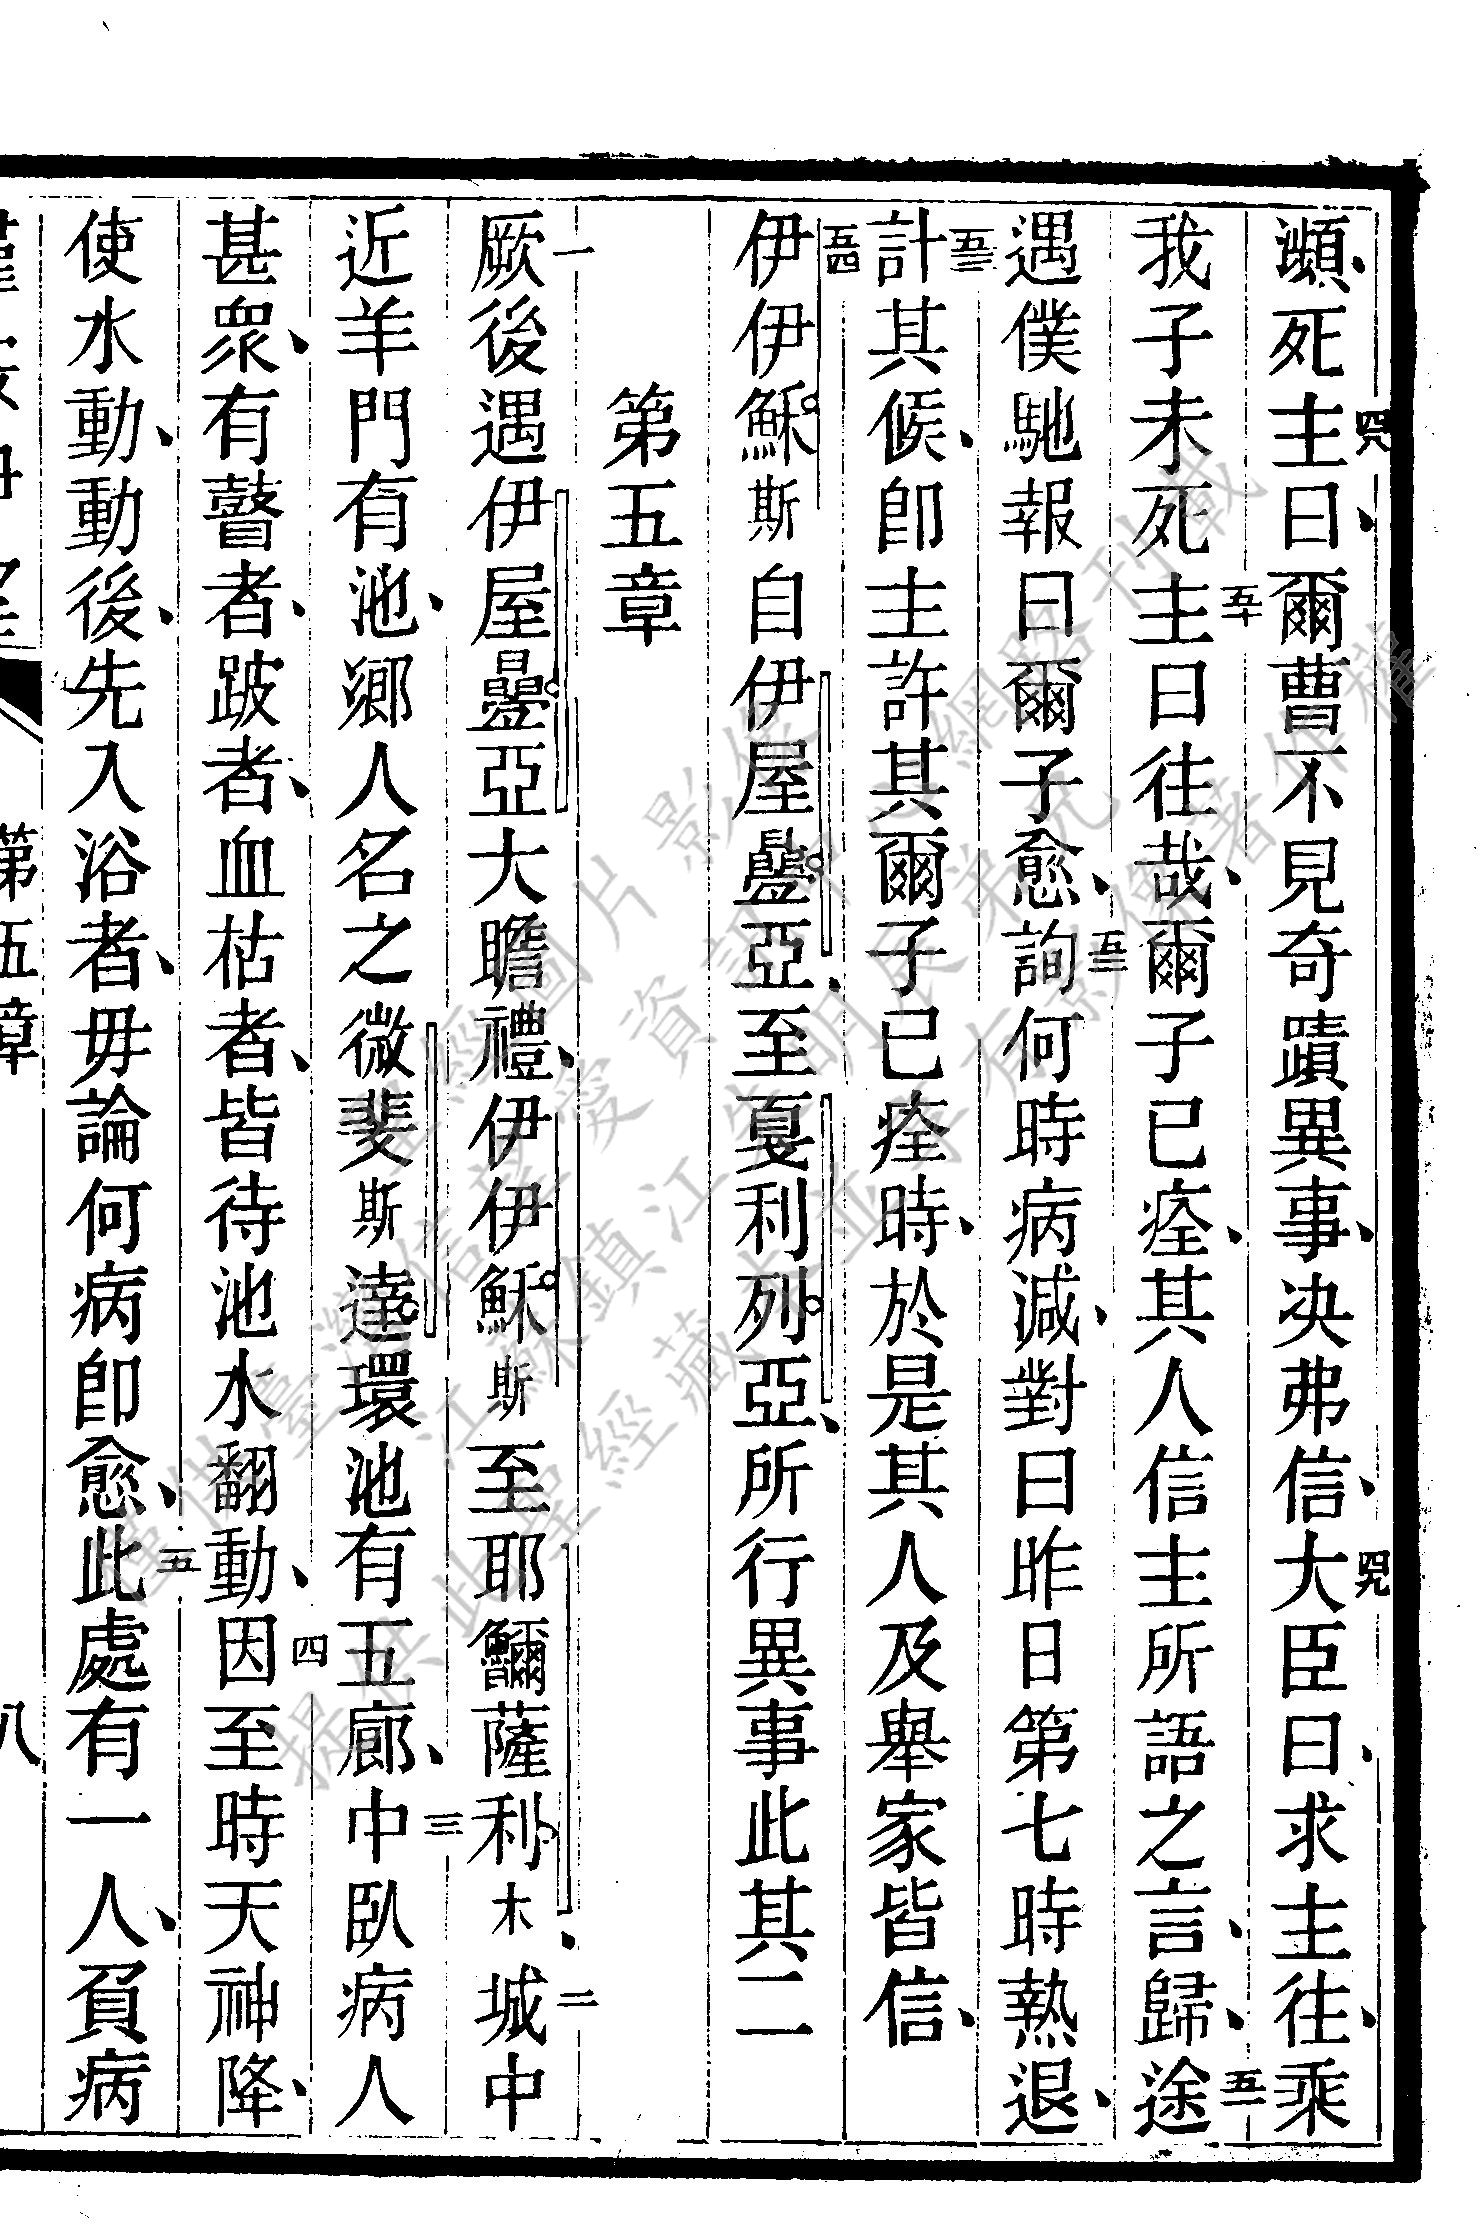 瀕、死四八主曰、爾曹不見奇蹟異事、決弗信、四九大臣曰、求主往、乘
我子未死五十主曰往哉、爾子已痊、其人信主所語之言、歸、五一途
遇僕馳報曰爾子愈、五二詢何時病減、對曰昨日第七時熱退、
五三計其候、卽主許其爾子已痊時、於是其人及舉家皆信、
五四伊伊穌斯自伊屋亞、至戛利列亞、所行異事此其二
第五章
一厥後遇伊屋亞大瞻禮、伊伊穌斯至耶薩利木、二城中
近羊門有池、鄉人名之微斐斯達環池有五廊、三中臥病人
甚眾、有瞽者、跛者、血枯者、皆待池水翻動、四因至時天神降、
使水動、動後、先入浴者、毋論何病卽愈、五此處有一人、負病
第五章 八